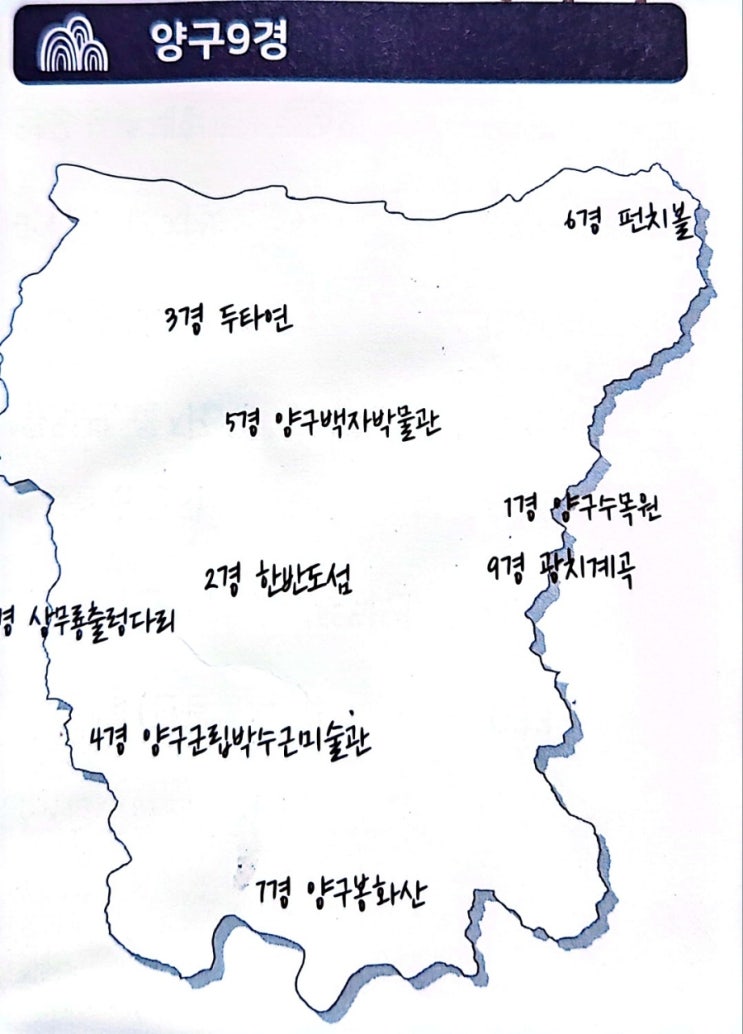 양구9경
6경 펀치볼
3경 두타연
5경 양구백자박물관
1경 양구수목원
2경 한반도섬
9경 광치계곡
경 상무룡출렁다리
4경 양구군립박수근미술관
7경 양구봉화산